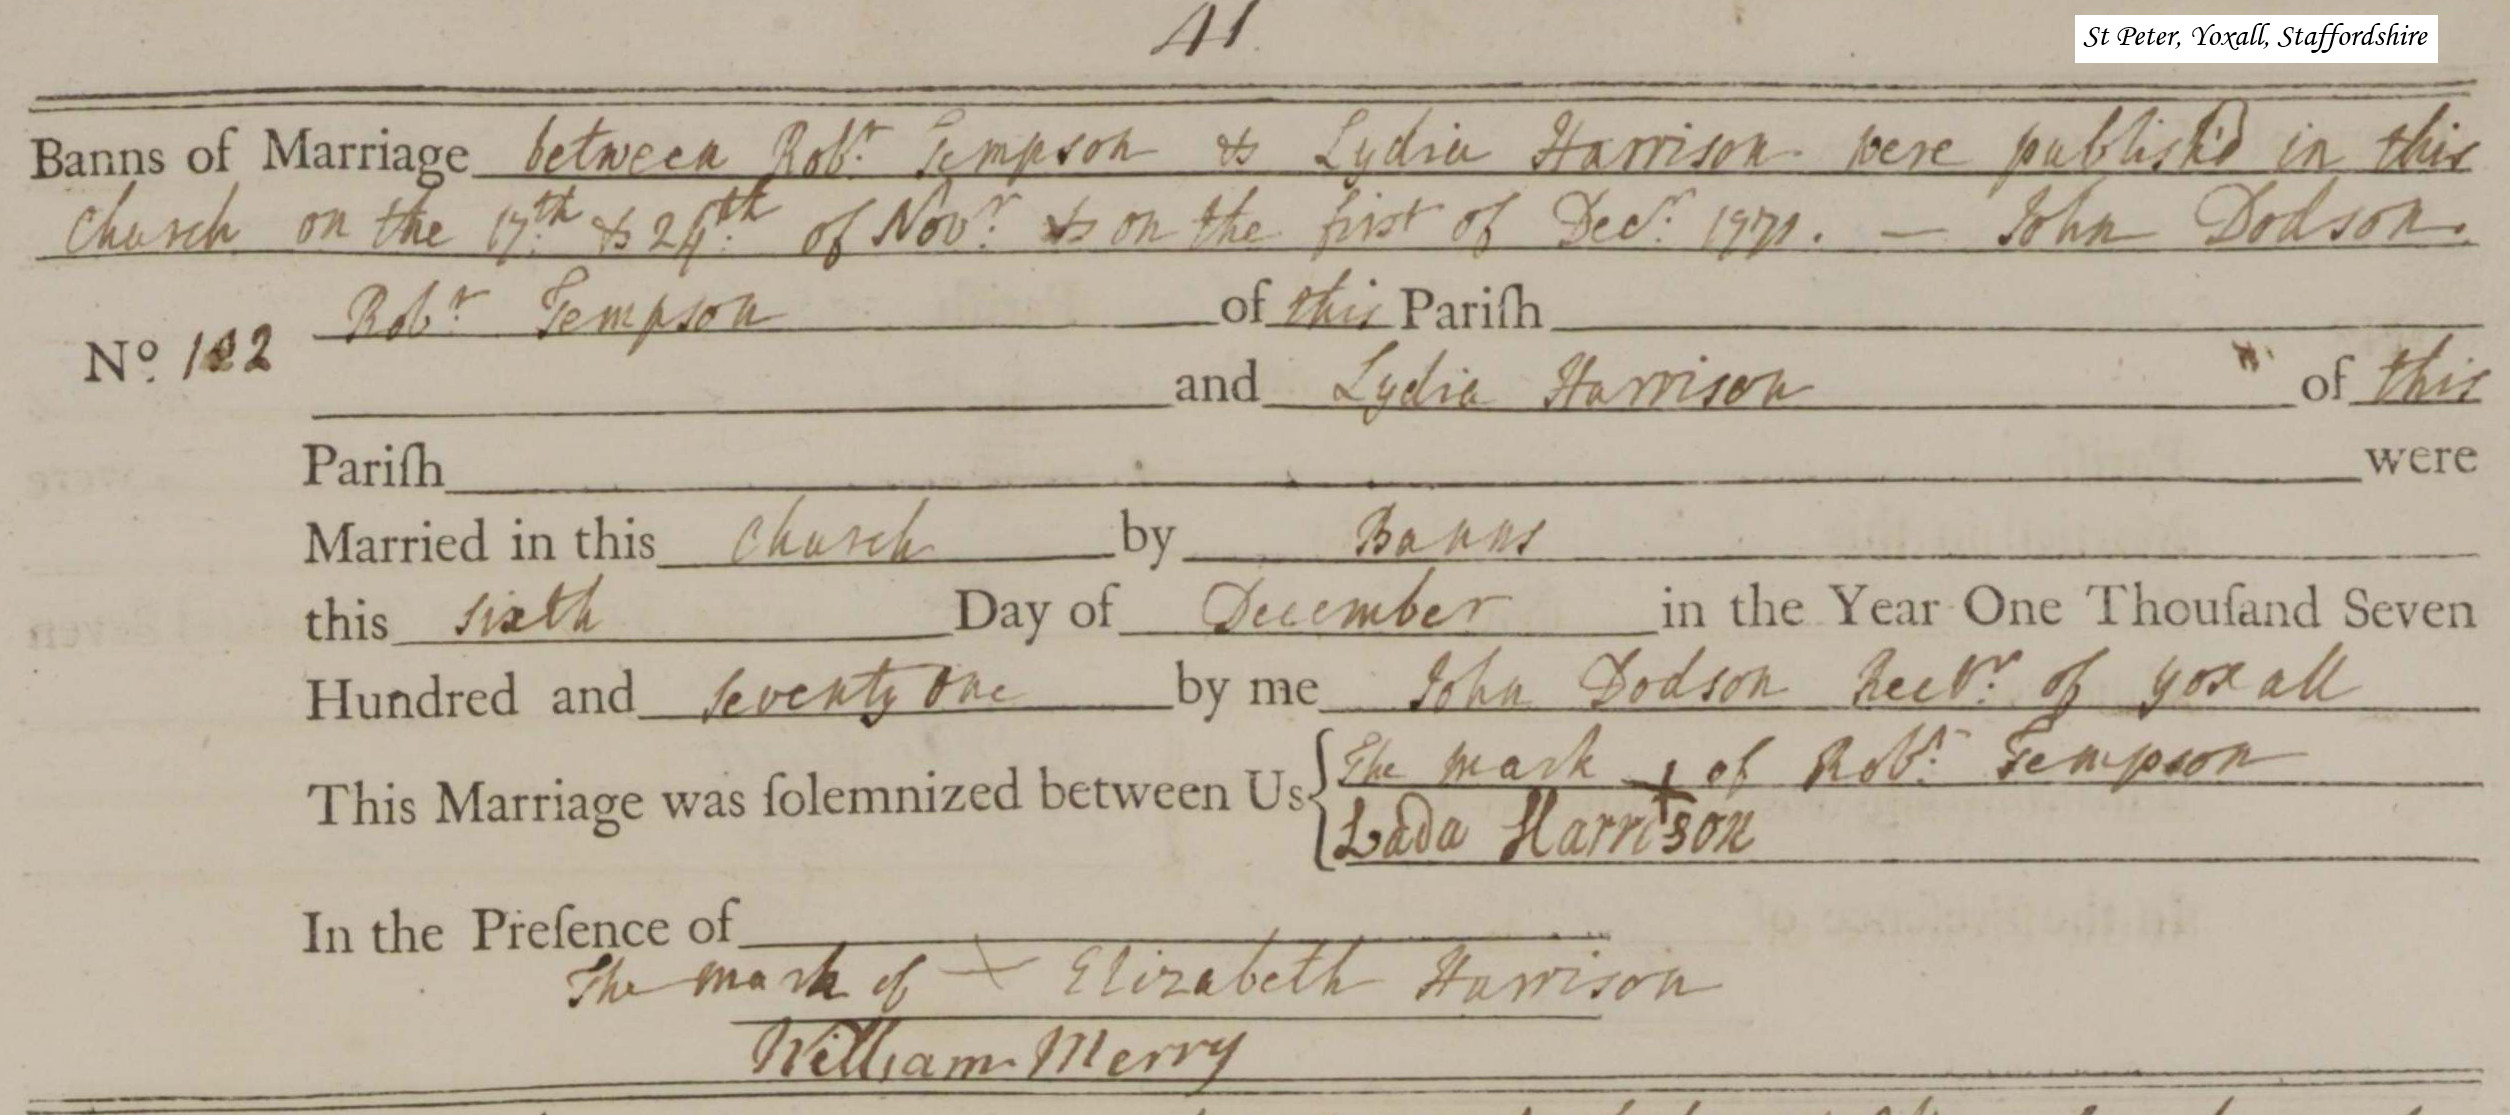 41
St Peter, Yoxall, Staffordshire
Banns of Marriage between Robt. Tempson & Lydia Harrison were publish'd in this
Church on the 17th & 24th of Novr. & on the first of Decr. 1771. — John Dodson.
Robt Tempson of this Pariſh
No. 122
and Lydia Harrison of this
Pariſh were
Married in this Church by Banns
this sixth Day of December in the Year One Thouſand Seven
Hundred and seventy one by me John Dodson Rectr. of yoxall
This Marriage was ſolemnized between Us { The mark + of Robt. Tempson
Lada Harrison
In the Preſence of
The mark of + Elizabeth Harrison
William Merry